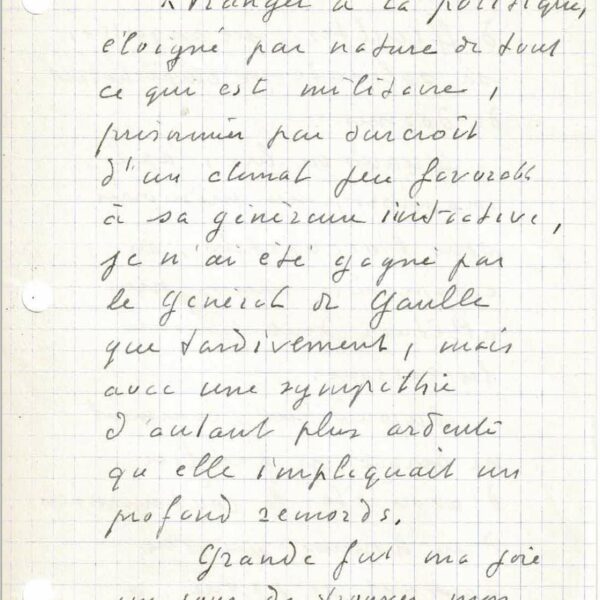 Etranger à la politique,
éloigné par nature de tout
ce qui est militaire,
prisonnier par surcroît
d'un climat peu favorable
à sa généreuse initiative,
je n'ai été gagné par
le Général de Gaulle
que tardivement, mais
avec une sympathie
d'autant plus ardente
qu'elle impliquait un
profond remords.
Grande fut ma joie
un jour de trouver mon